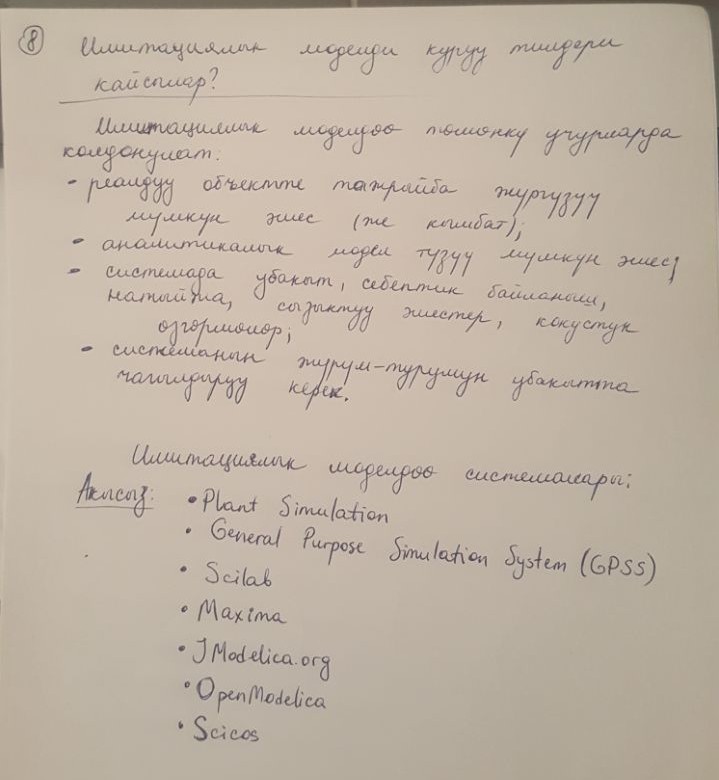 8 Имитациялык моделди куруу тилдери
кайсылар?
Имитациялык моделдоо томонку учурларда
колдонулат:
- реалдуу объектте тажрыйба жургузуу
мумкун эмес (же кымбат);
- аналитикалык модел тузуу мумкун эмес;
- системада убакыт, себептик байланыш,
натыйжа, сызыктуу эместер, кокустук
озгормолор;
- системанын журум-турумун убакытта
чагылдыруу керек.
Имитациялык моделдоо системалары:
Акысыз: • Plant Simulation
• General Purpose Simulation System (GPSS)
• Scilab
• Maxima
• JModelica.org
• OpenModelica
• Scicos